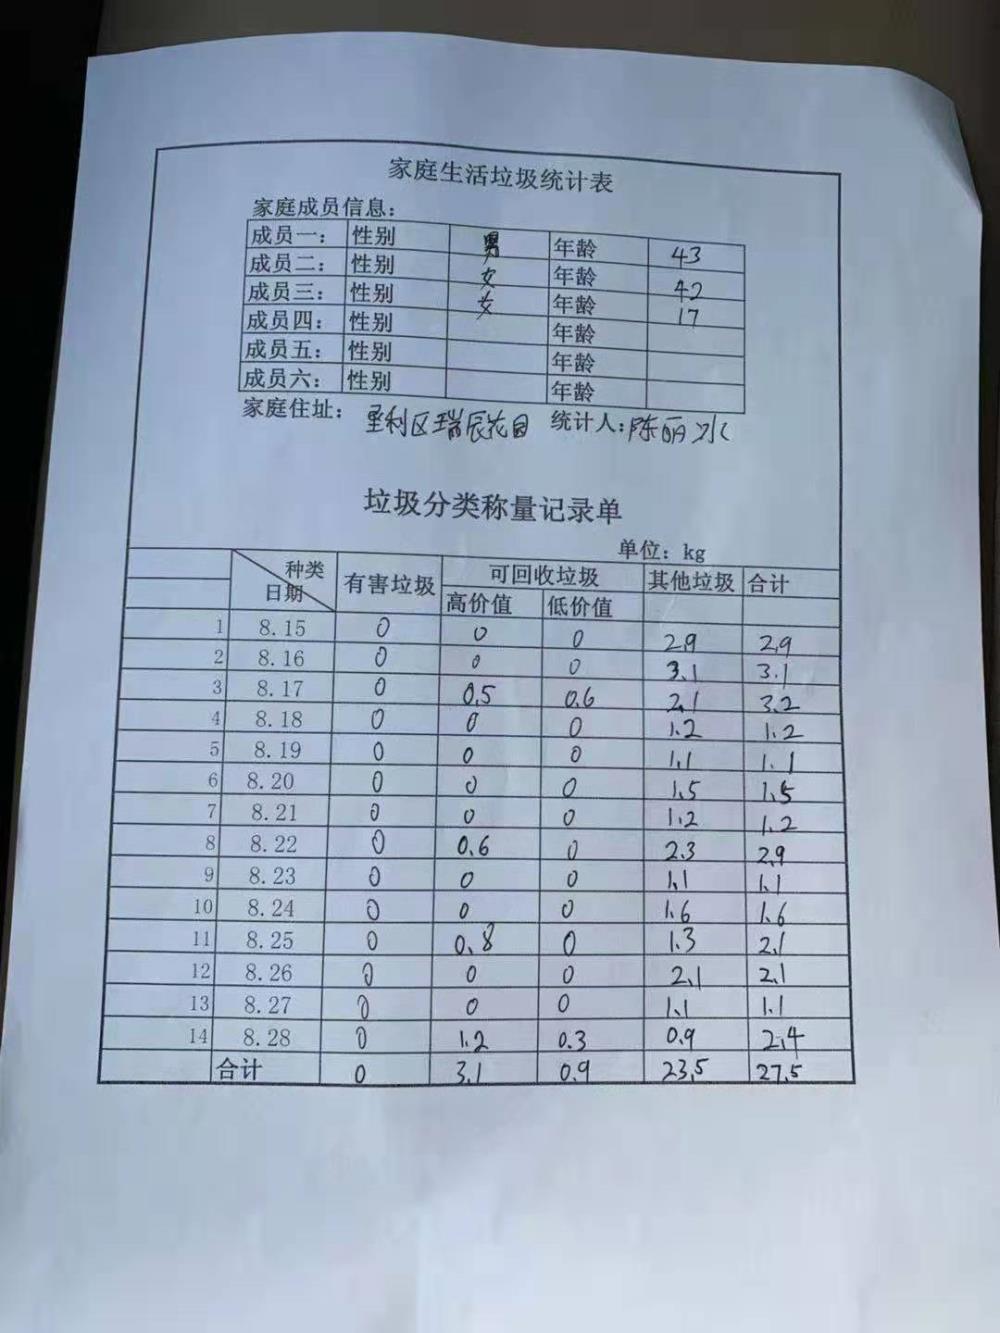 家庭生活垃圾统计表
家庭成员信息：
成员一： 性别 男 年龄 43
成员二： 性别 女 年龄 42
成员三： 性别 女 年龄 17
成员四： 性别 年龄
成员五： 性别 年龄
成员六： 性别 年龄
家庭住址： 垦利区瑞辰花园 统计人：陈丽冰
垃圾分类称量记录单
单位：kg
种类 日期 有害垃圾 可回收垃圾 其他垃圾 合计
高价值 低价值
1 8.15 0 0 0 2.9 2.9
2 8.16 0 0 0 3.1 3.1
3 8.17 0 0.5 0.6 2.1 3.2
4 8.18 0 0 0 1.2 1.2
5 8.19 0 0 0 1.1 1.1
6 8.20 0 0 0 1.5 1.5
7 8.21 0 0 0 1.2 1.2
8 8.22 0 0.6 0 2.3 2.9
9 8.23 0 0 0 1.1 1.1
10 8.24 0 0 0 1.6 1.6
11 8.25 0 0.8 0 1.3 2.1
12 8.26 0 0 0 2.1 2.1
13 8.27 0 0 0 1.1 1.1
14 8.28 0 1.2 0.3 0.9 2.4
合计 0 3.1 0.9 23.5 27.5